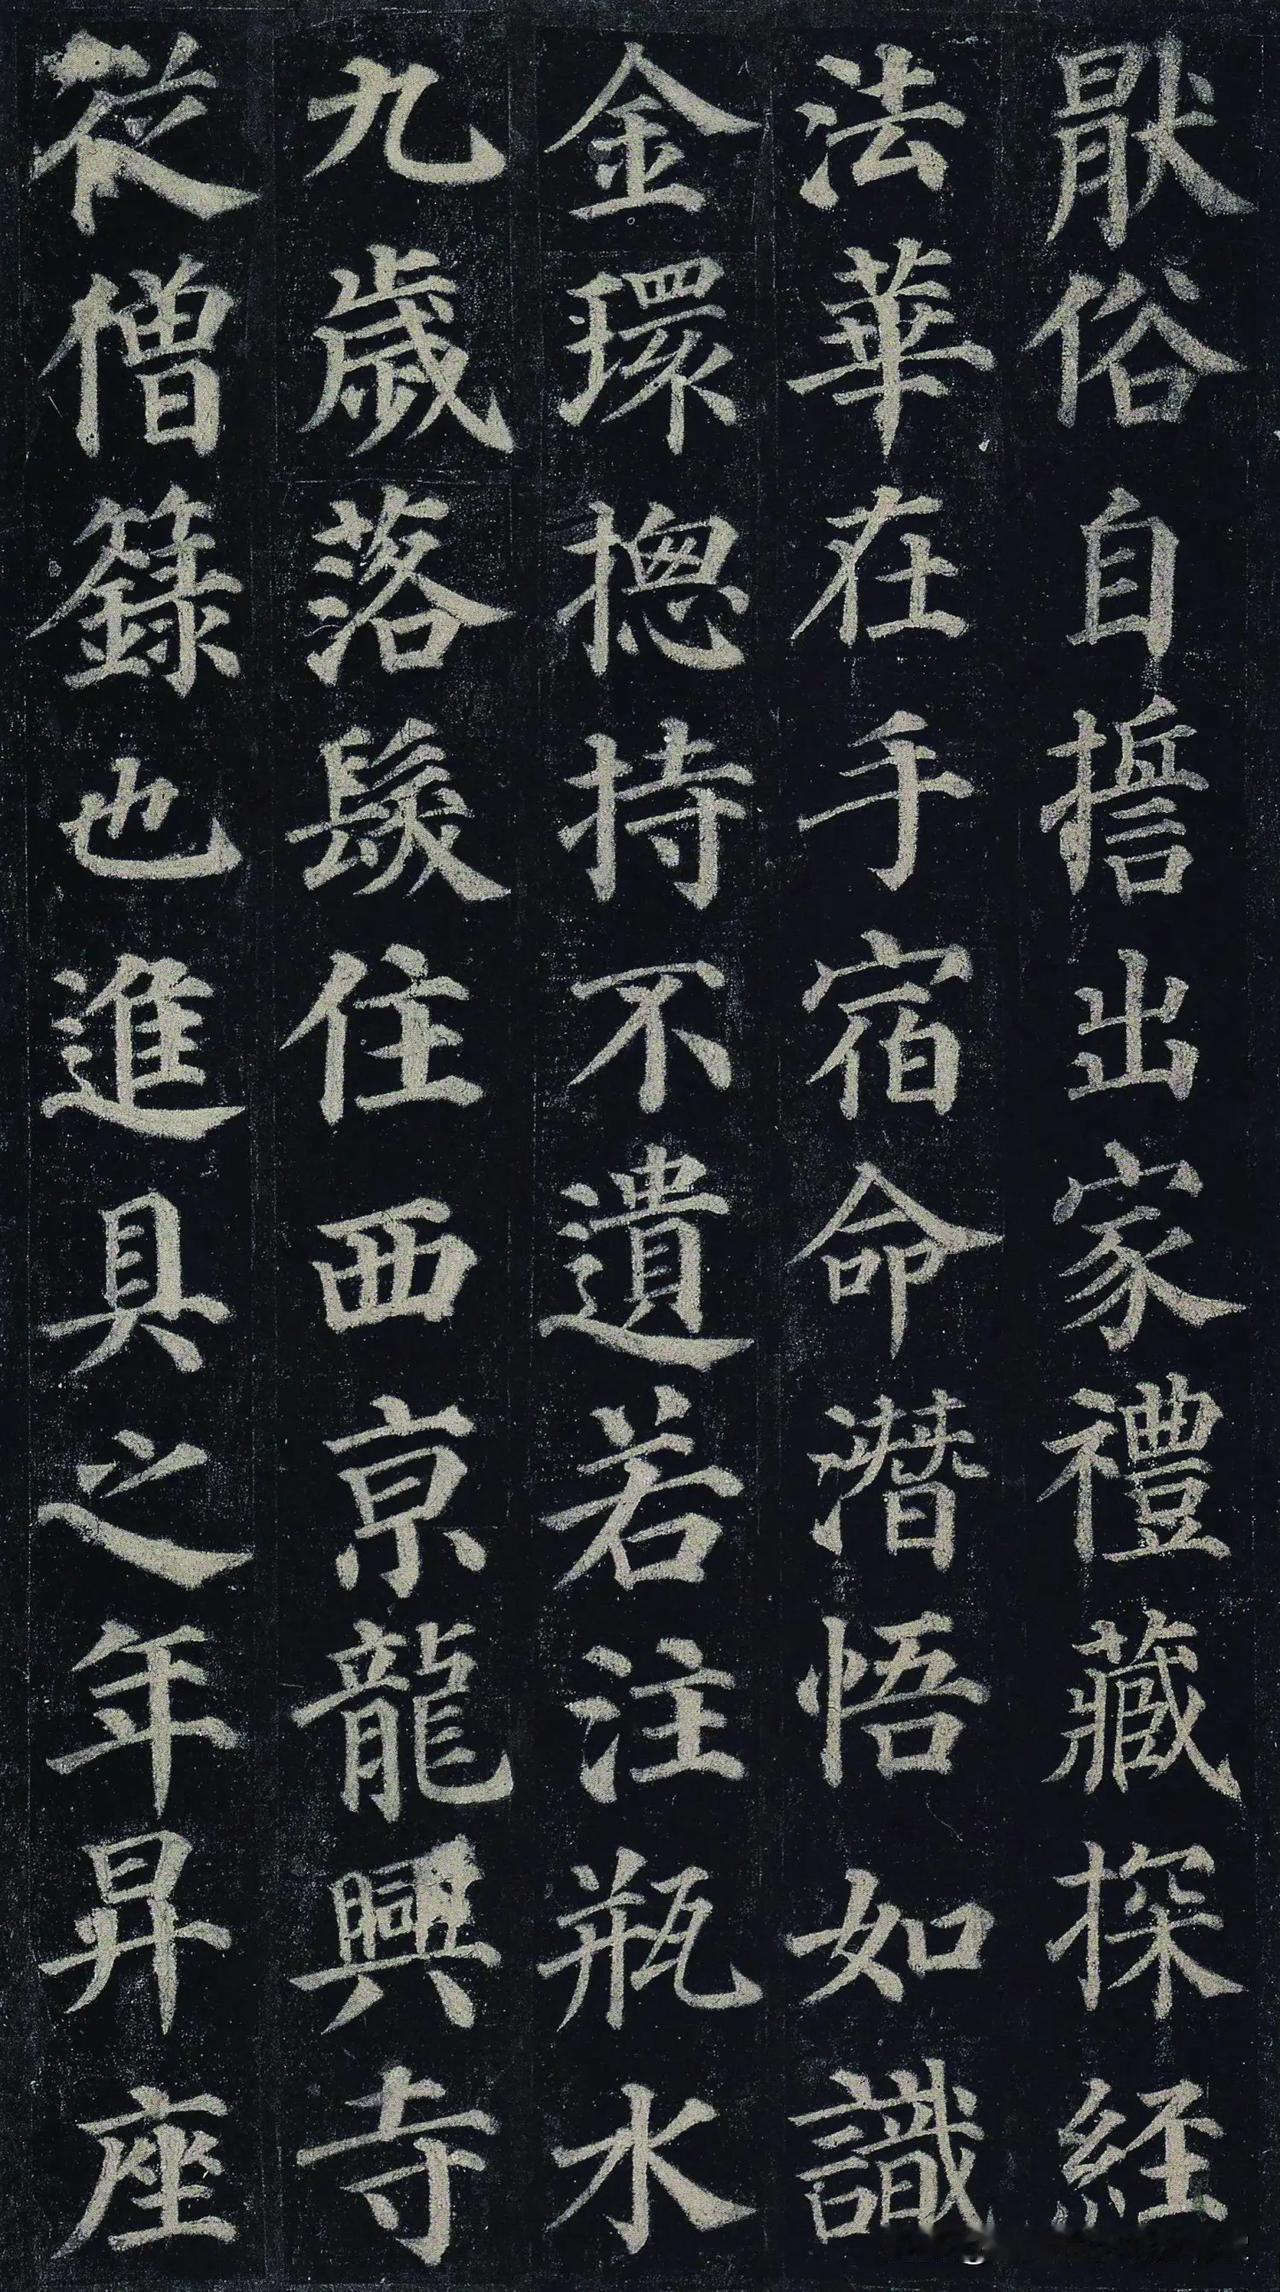 猒俗自擔出家禮藏探経
法華在手宿命潛悟如識
金環揔持不遺若注瓶水
九歲落髮住西京龍興寺
從僧籙也進具之年昇座